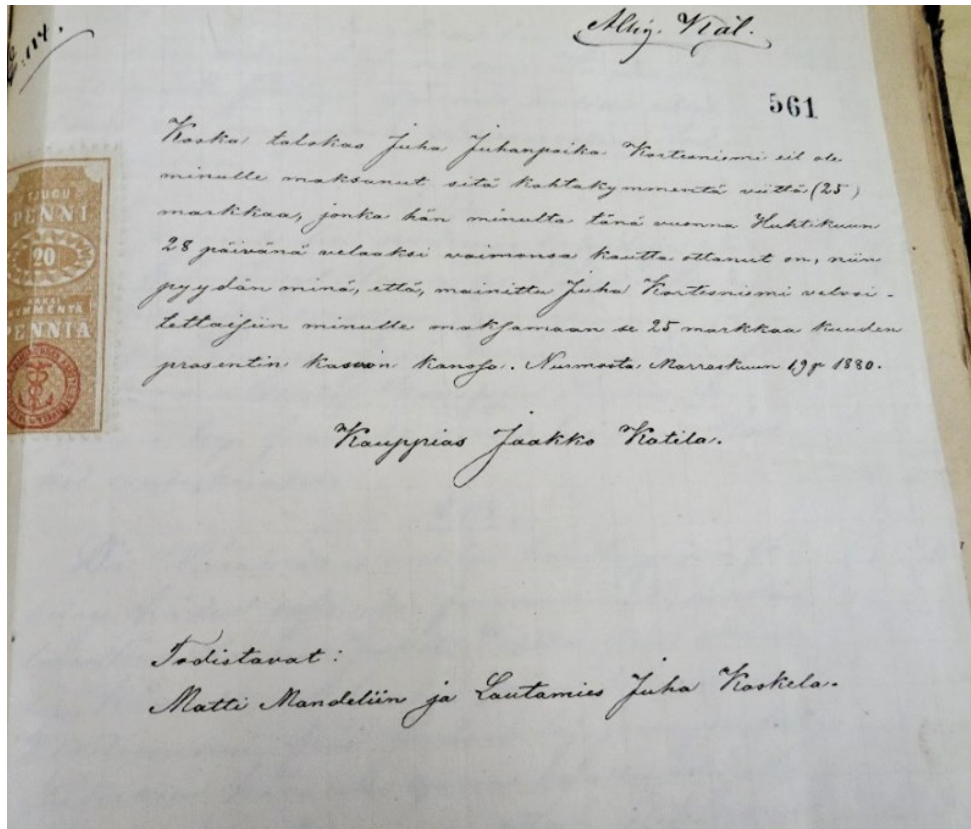 :114.
561
Koska talokas Juha Juhanpoika Kortesniemi eil ole
minulle maksanut sitä kahtakymmentä viittä (25)
markkaa, jonka hän minulta tänä vuonna Huhtikuun
28 päivänä velaaksi vaimonsa kautta ottanut on, niin
pyydän minä, että, mainittu Juha Kortesniemi velvoi-
tettaisiin minulle maksamaan se 25 markkaa kuuden
prosentin kasvon kanssa. Nurmosta Marraskuun 19 p 1880.
Kauppias Jaakko Katila.
Todistavat:
Matti Mandeliin ja Lautamies Juha Koskela.
TJUGU
PENNI
20
KAKSI
KYMMENTÄ
PENNIÄ